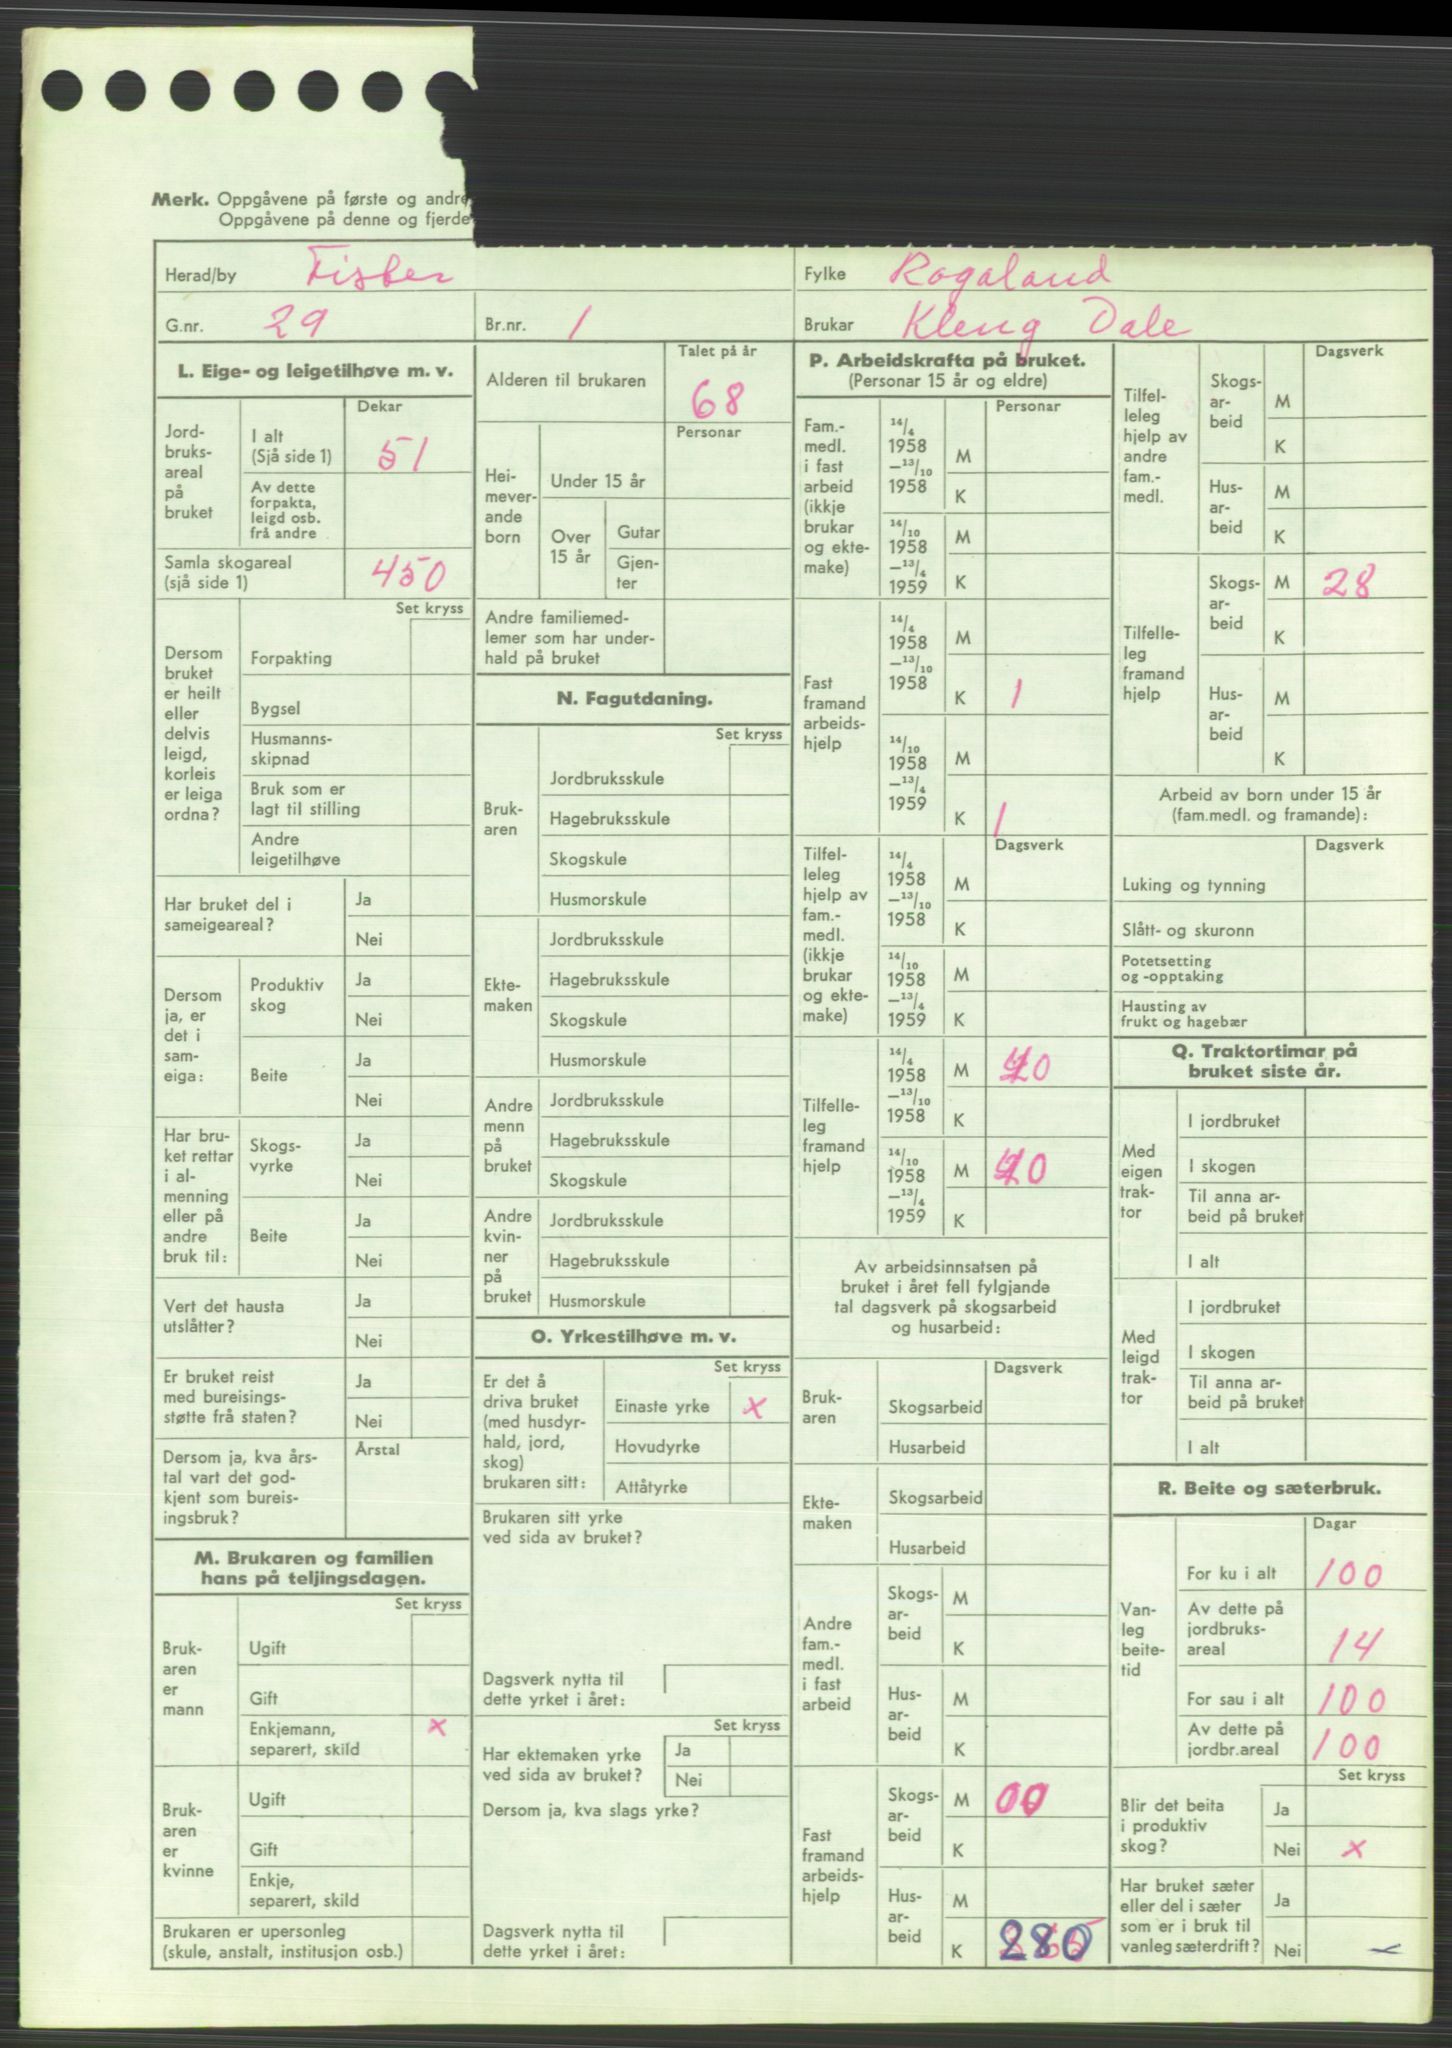 Merk. Oppgåvene på første og andre
Oppgåvene på denne og fjerde
Herad/by Fister
Fylke Rogaland
G.nr. 29
Br.nr. 1
Brukar Kleng Dale
L. Eige- og leigetilhøve m. v.
Dekar
Jord-
bruks-
areal
på
bruket
I alt
(Sjå side 1) 51
Av dette
forpakta,
leigd osb.
frå andre
Samla skogareal
(sjå side 1) 450
Set kryss
Dersom
bruket
er heilt
eller
delvis
leigd,
korleis
er leiga
ordna?
Forpakting
Bygsel
Husmanns-
skipnad
Bruk som er
lagt til stilling
Andre
leigetilhøve
Har bruket del i
sameigeareal?
Ja
Nei
Dersom
ja, er
det i
sam-
eiga:
Produktiv
skog
Ja
Nei
Beite
Ja
Nei
Har bru-
ket rettar
i al-
menning
eller på
andre
bruk til:
Skogs-
vyrke
Ja
Nei
Beite
Ja
Nei
Vert det hausta
utslåtter?
Ja
Nei
Er bruket reist
med bureisings-
støtte frå staten?
Ja
Nei
Dersom ja, kva års-
tal vart det god-
kjent som bureis-
ingsbruk?
Årstal
M. Brukaren og familien
hans på teljingsdagen.
Set kryss
Bruk-
aren
er
mann
Ugift
Gift
Enkjemann,
separert, skild x
Bruk-
aren
er
kvinne
Ugift
Gift
Enkje,
separert, skild
Brukaren er upersonleg
(skule, anstalt, institusjon osb.)
Talet på år
Alderen til brukaren 68
Personar
Hei-
mever-
ande
born
Under 15 år
Over
15 år
Gutar
Gjen-
ter
Andre familiemed-
lemer som har under-
hald på bruket
N. Fagutdaning.
Set kryss
Bruk-
aren
Jordbruksskule
Hagebruksskule
Skogskule
Husmorskule
Ekte-
maken
Jordbruksskule
Hagebruksskule
Skogskule
Husmorskule
Andre
menn
på
bruket
Jordbruksskule
Hagebruksskule
Skogskule
Andre
kvin-
ner
på
bruket
Jordbruksskule
Hagebruksskule
Husmorskule
O. Yrkestilhøve m. v.
Set kryss
Er det å
driva bruket
(med husdyr-
hald, jord,
skog)
brukaren sitt:
Einaste yrke x
Hovudyrke
Attåtyrke
Brukaren sitt yrke
ved sida av bruket?
Dagsverk nytta til
dette yrket i året:
Set kryss
Har ektemaken yrke
ved sida av bruket?
Ja
Nei
Dersom ja, kva slags yrke?
Dagsverk nytta til
dette yrket i året:
P. Arbeidskrafta på bruket.
(Personar 15 år og eldre)
Personar
Fam.-
medl.
i fast
arbeid
(ikkje
brukar
og ekte-
make)
14/4
1958
—13/10
1958
M
K
14/10
1958
—13/4
1959
M
K
Fast
framand
arbeids-
hjelp
14/4
1958
—13/10
1958
M
K 1
14/10
1958
—13/4
1959
M
K 1
Dagsverk
Tilfel-
leleg
hjelp av
fam.-
medl.
(ikkje
brukar
og ekte-
make)
14/4
1958
—13/10
1958
M
K
14/10
1958
—13/4
1959
M
K
Tilfelle-
leg
framand
hjelp
14/4
1958
—13/10
1958
M
K
14/10
1958
—13/4
1959
M
K
Av arbeidsinnsatsen på
bruket i året fell fylgjande
tal dagsverk på skogsarbeid
og husarbeid:
Dagsverk
Bruk-
aren
Skogsarbeid
Husarbeid
Ekte-
maken
Skogsarbeid
Husarbeid
Andre
fam.-
medl.
i fast
arbeid
Skogs-
ar-
beid
M
K
Hus-
ar-
beid
M
K
Fast
framand
arbeids-
hjelp
Skogs-
ar-
beid
M 00
K
Hus-
ar-
beid
M
K 280
Dagsverk
Tilfel-
leleg
hjelp av
andre
fam.-
medl.
Skogs-
ar-
beid
M
K
Hus-
ar-
beid
M
K
Tilfelle-
leg
framand
hjelp
Skogs-
ar-
beid
M 28
K
Hus-
ar-
beid
M
K
Arbeid av born under 15 år
(fam.medl. og framande):
Dagsverk
Luking og tynning
Slått- og skuronn
Potetsetting
og -opptaking
Hausting av
frukt og hagebær
Q. Traktortimar på
bruket siste år.
Med
eigen
trak-
tor
I jordbruket
I skogen
Til anna ar-
beid på bruket
I alt
Med
leigd
trak-
tor
I jordbruket
I skogen
Til anna ar-
beid på bruket
I alt
R. Beite og sæterbruk.
Dagar
Van-
leg
beite-
tid
For ku i alt 100
Av dette på
jordbruks-
areal 14
For sau i alt 100
Av dette på
jordbr.areal 100
Set kryss
Blir det beita
i produktiv
skog?
Ja
Nei x
Har bruket sæter
eller del i sæter
som er i bruk til
vanleg sæterdrift?
Ja
Nei